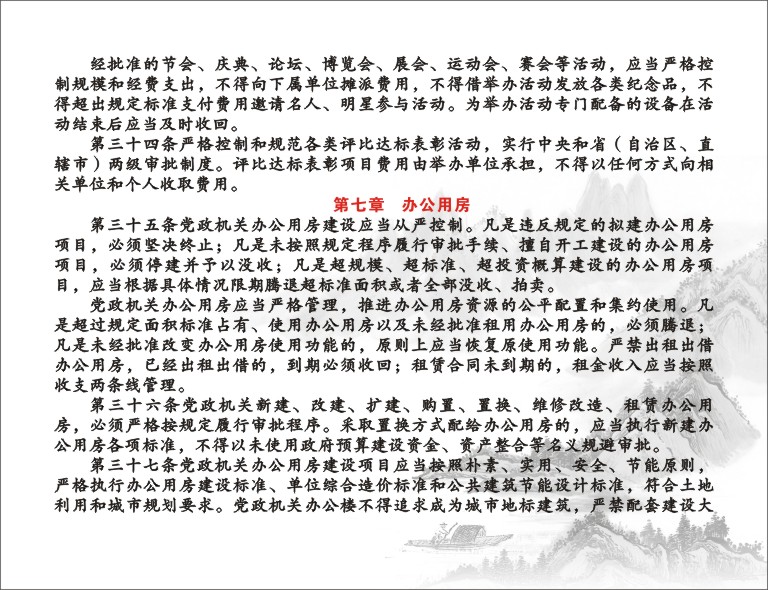 经批准的节会、庆典、论坛、博览会、展会、运动会、赛会等活动，应当严格控
制规模和经费支出，不得向下属单位摊派费用，不得借举办活动发放各类纪念品，不
得超出规定标准支付费用邀请名人、明星参与活动。为举办活动专门配备的设备在活
动结束后应当及时收回。
第三十四条严格控制和规范各类评比达标表彰活动，实行中央和省（自治区、直
辖市）两级审批制度。评比达标表彰项目费用由举办单位承担，不得以任何方式向相
关单位和个人收取费用。
第七章 办公用房
第三十五条党政机关办公用房建设应当从严控制。凡是违反规定的拟建办公用房
项目，必须坚决终止；凡是未按照规定程序履行审批手续、擅自开工建设的办公用房
项目，必须停建并予以没收；凡是超规模、超标准、超投资概算建设的办公用房项
目，应当根据具体情况限期腾退超标准面积或者全部没收、拍卖。
党政机关办公用房应当严格管理，推进办公用房资源的公平配置和集约使用。凡
是超过规定面积标准占有、使用办公用房以及未经批准租用办公用房的，必须腾退；
凡是未经批准改变办公用房使用功能的，原则上应当恢复原使用功能。严禁出租出借
办公用房，已经出租出借的，到期必须收回；租赁合同未到期的，租金收入应当按照
收支两条线管理。
第三十六条党政机关新建、改建、扩建、购置、置换、维修改造、租赁办公用
房，必须严格按规定履行审批程序。采取置换方式配给办公用房的，应当执行新建办
公用房各项标准，不得以未使用政府预算建设资金、资产整合等名义规避审批。
第三十七条党政机关办公用房建设项目应当按照朴素、实用、安全、节能原则，
严格执行办公用房建设标准、单位综合造价标准和公共建筑节能设计标准，符合土地
利用和城市规划要求。党政机关办公楼不得追求成为城市地标建筑，严禁配套建设大